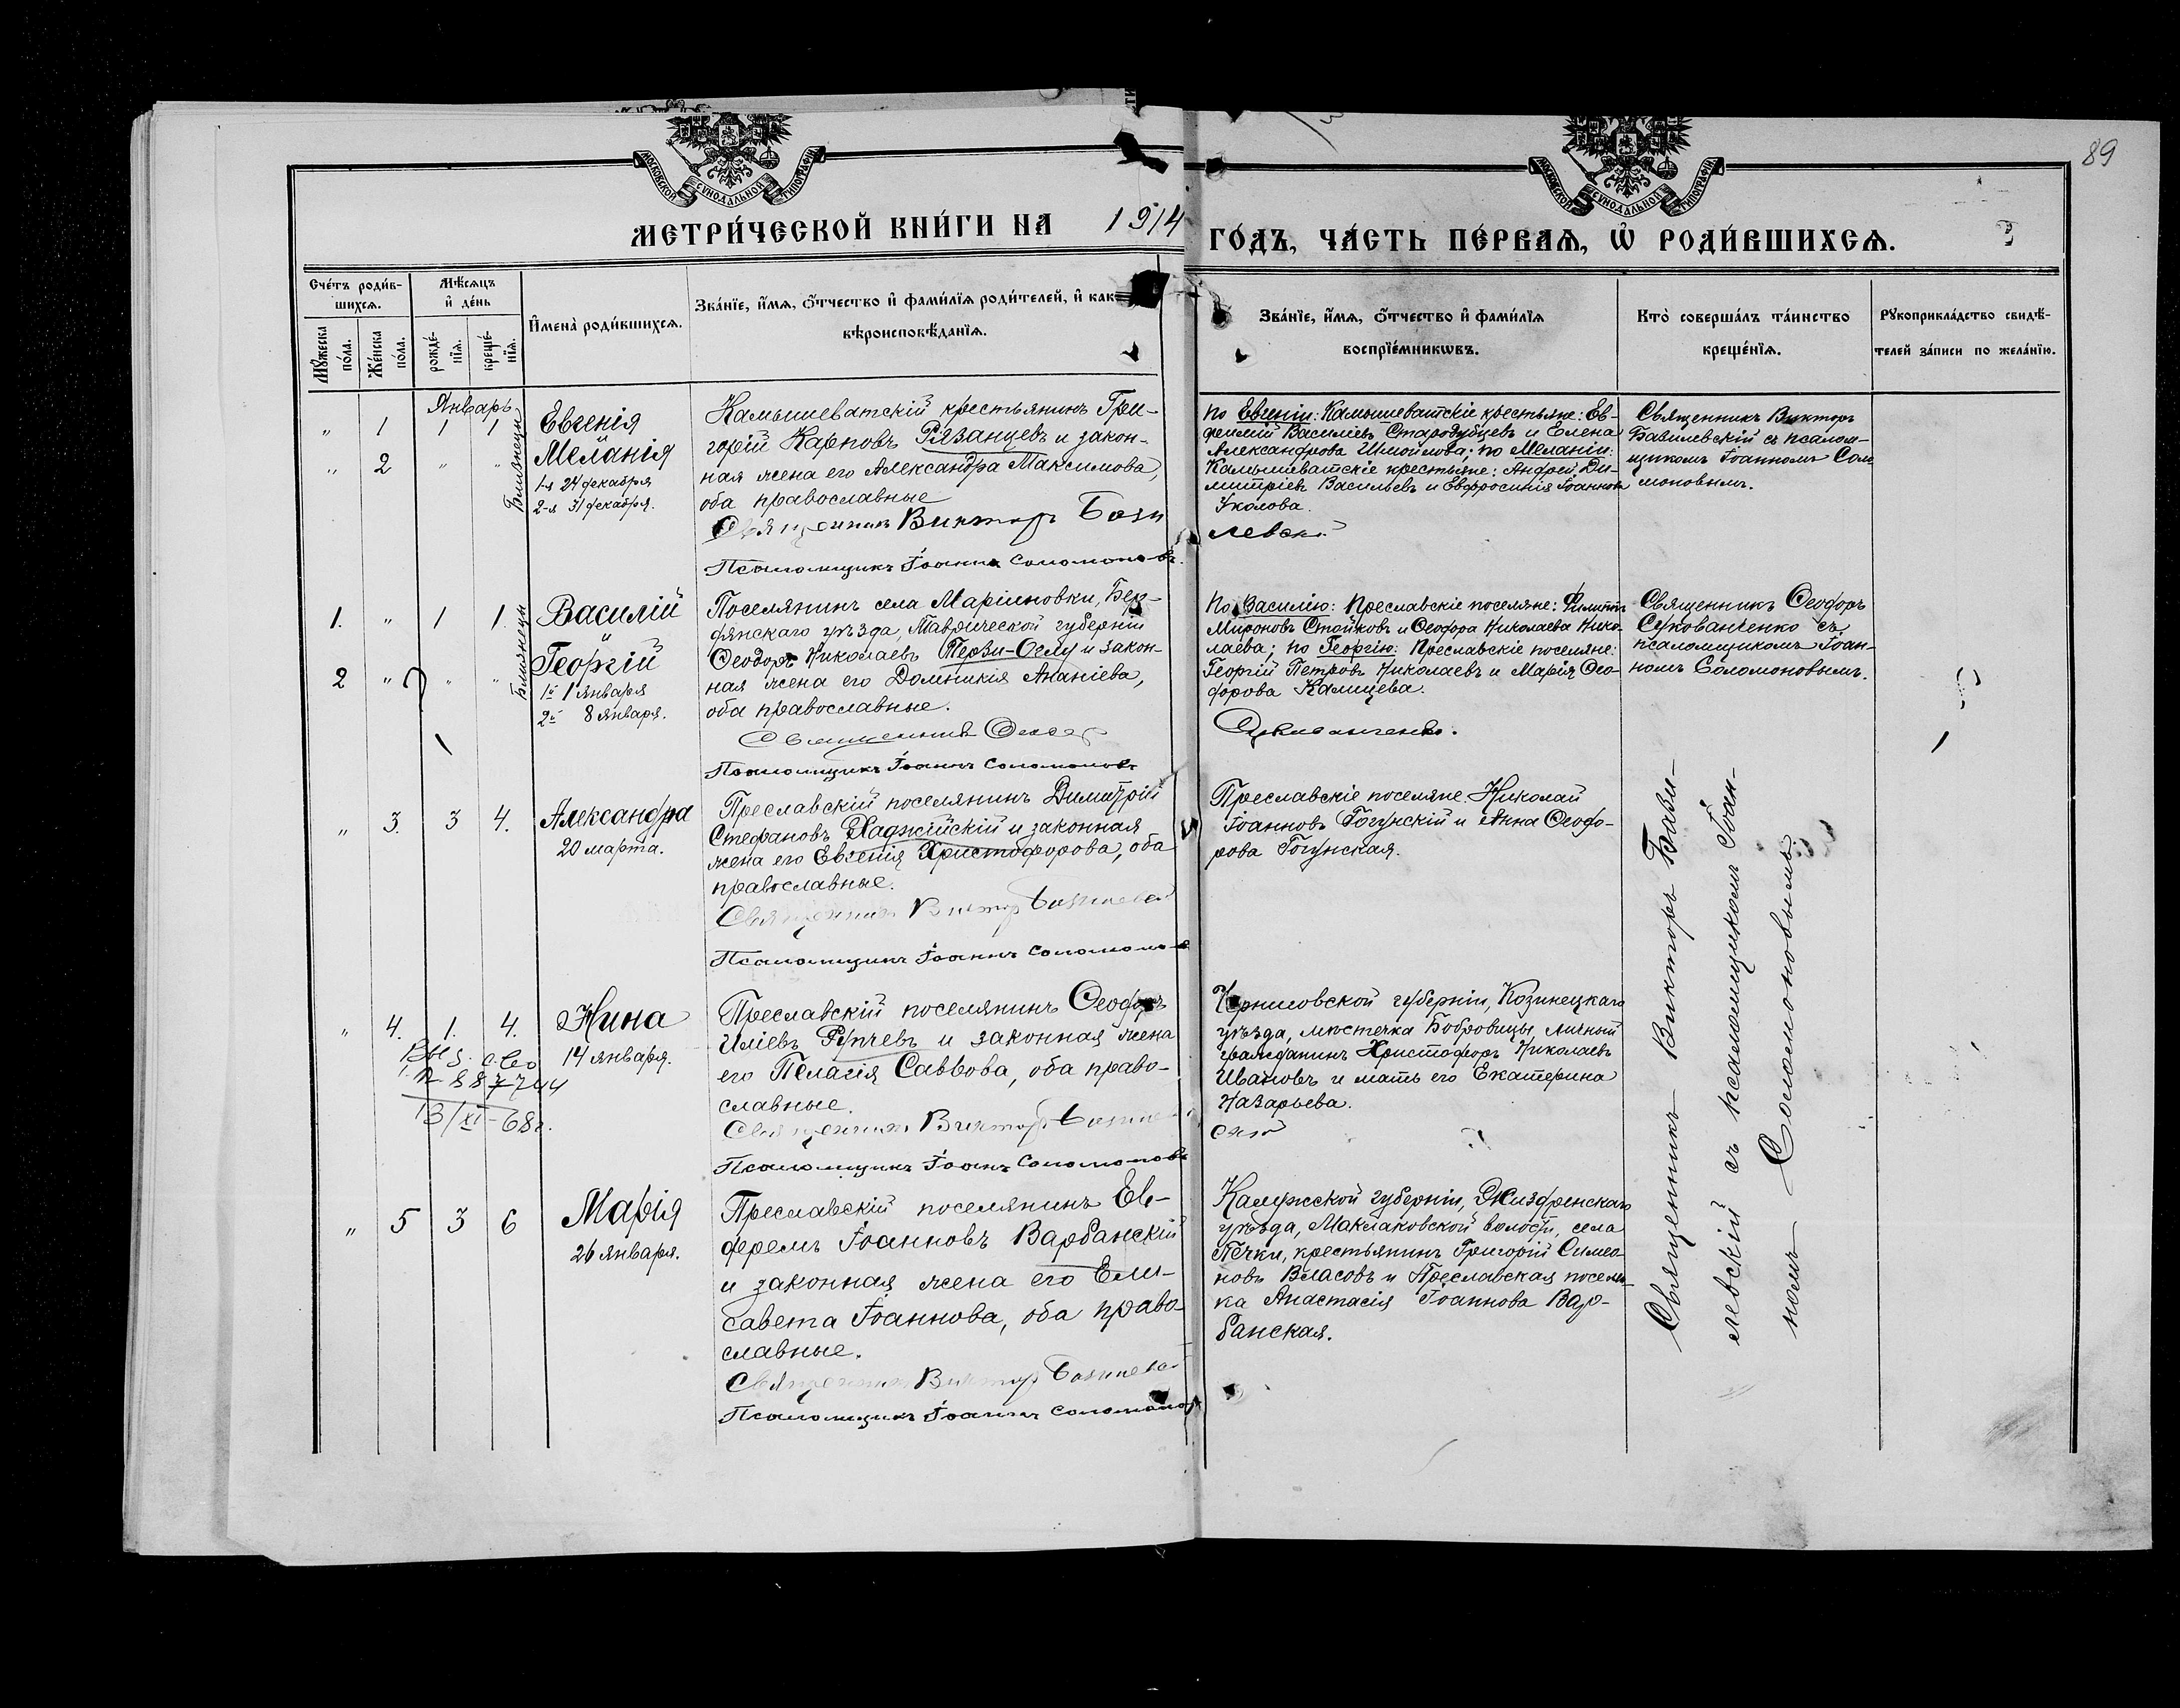 89
МОСКОВСКОЙ СѴНОДАЛЬНОЙ ТИПОГРАФІИ
МОСКОВСКОЙ СѴНОДАЛЬНОЙ ТИПОГРАФІИ
МЕТРИ́ЧЕСКОЙ КНИ́ГИ НА 1914 ГО́ДЪ, ЧА́СТЬ ПЕ́РВАѦ, Ѡ҆ РОДИ́ВШИХСѦ.
Сче́тъ роди́в-
шихсѧ.
Мѣ́сѧцъ
и҆ де́нь
Мꙋ́жеска
по́ла.
Же́нска
по́ла.
рожде́-
нїѧ.
креще́-
нїѧ.
И҆мена̀ роди́вшихсѧ.
Зва́нїе, и҆́мѧ, ѻ҆́тчество и҆ фами́лїѧ роди́телей, и҆ как
вѣроисповѣ́данїѧ.
Зва́нїе, и҆́мѧ, ѻ҆́тчество и҆ фами́лїѧ
воспрїе́мникѡвъ.
Кто̀ соверша́лъ та́инство
креще́нїѧ.
Рꙋкоприкла́дство свидѣ́-
телей за́писи по жела́нїю.
Январь
" 1 1 1
" 2 " "
Близнецы
Евгенія
Меланія
1-я 24 декабря
2-я 31 декабря.
Камышеватскій крестьянинъ Гри-
горій Карповъ Рязанцевъ и закон-
ная жена его Александра Максимова,
оба православные
Священникъ Викторъ Бази
левскій
Псаломщикъ Іоаннъ Соломоновъ.
По Евгеніи: Камышеватскіе крестьяне: Ев-
фимій Василіевъ Стародубцевъ и Елена
Александрова Шмойлова; по Меланіи:
Камышеватскіе крестьяне: Андрей Ди-
митріевъ Васильевъ и Евфросинія Іоаннова
Уколова.
Священникъ Викторъ
Базилевскій съ псалом-
щикомъ Іоанномъ Соло-
моновымъ.
1. " 1 1.
2 " " "
Близнецы
Василій
Георгій
1й 1 января
2й 8 января.
Поселянинъ села Маріиновки, Бер-
дянскаго уѣзда, Таврической губерніи
Ѳеодоръ Николаевъ Терзи-Оглу и закон-
ная жена его Домникія Ананіева,
оба православные.
Священникъ Ѳеодоръ
Сукованченко.
Псаломщикъ Іоаннъ Соломоновъ
По Василію: Преславскіе поселяне: Филиппъ
Мироновъ Стойковъ и Ѳеодора Николаева Нико-
лаева; по Георгію: Преславскіе поселяне:
Георгій Петровъ Николаевъ и Марія Ѳео-
дорова Калицева.
Священникъ Ѳеодоръ
Сукованченко съ
псаломщикомъ Іоан-
номъ Соломоновымъ.
" 3. 3 4.
Александра
20 марта.
Преславскій поселянинъ Димитрій
Стефановъ Хаджійскій и законная
жена его Евгенія Христофорова, оба
православные.
Священникъ Викторъ Базилевскій
Псаломщикъ Іоаннъ Соломоновъ
Преславскіе поселяне: Николай
Іоанновъ Гогунскій и Анна Ѳеодо-
рова Гогунская.
" 4. 1. 4.
Нина
14 января.
13/XI-68г.
Преславскій поселянинъ Ѳеодоръ
Иліевъ Рупчевъ и законная жена
его Пелагія Саввова, оба право-
славные.
Священникъ Викторъ Базилев
скій
Псаломщикъ Іоаннъ Соломоновъ
Черниговской губерніи, Козинецкаго
уѣзда, мѣстечка Бобровицы, личный
гражданинъ Христофоръ Николаевъ
Ивановъ и мать его Екатерина
Назарьева.
" 5 3 6
Марія
26 января.
Преславскій поселянинъ Ев-
феремъ Іоанновъ Варбанскій
и законная жена его Ели-
савета Іоаннова, оба право-
славные.
Священникъ Викторъ Базилевскій
Псаломщикъ Іоаннъ Соломоновъ
Калужской губерніи, Жиздренскаго
уѣзда, Маклаковской волости, села
Печки, крестьянинъ Григорій Симео-
новъ Власовъ и Преславская поселян-
ка Анастасія Іоаннова Вар-
банская.
Священникъ Викторъ Бази-
левскій съ псаломщикомъ Іоан-
номъ Соломоновымъ.